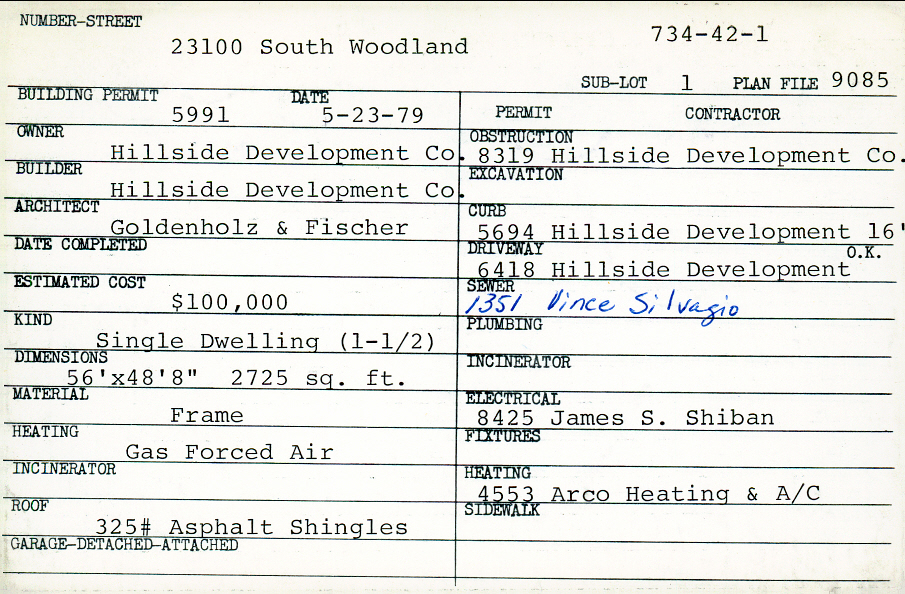 NUMBER-STREET
23100 South Woodland
734-42-1
SUB-LOT 1 PLAN FILE 9085
BUILDING PERMIT DATE
5991 5-23-79
OWNER
Hillside Development Co.
BUILDER
Hillside Development Co.
ARCHITECT
Goldenholz & Fischer
DATE COMPLETED
ESTIMATED COST
$100,000
KIND
Single Dwelling (1-1/2)
DIMENSIONS
56'x48'8" 2725 sq. ft.
MATERIAL
Frame
HEATING
Gas Forced Air
INCINERATOR
ROOF
325# Asphalt Shingles
GARAGE-DETACHED-ATTACHED
PERMIT CONTRACTOR
OBSTRUCTION
8319 Hillside Development Co.
EXCAVATION
CURB
5694 Hillside Development 16'
DRIVEWAY O.K.
6418 Hillside Development
SEWER
1351 Vince Silvagio
PLUMBING
INCINERATOR
ELECTRICAL
8425 James S. Shiban
FIXTURES
HEATING
4553 Arco Heating & A/C
SIDEWALK